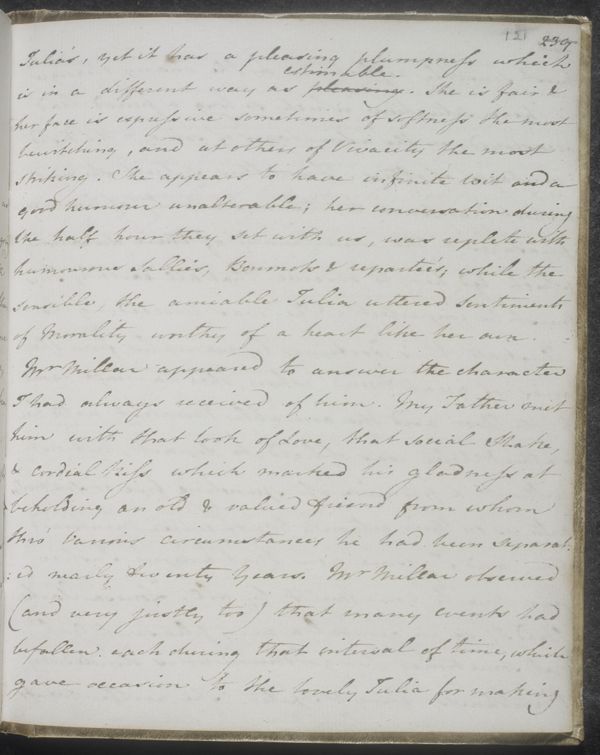 121 239
Julia's, yet it has a pleasing plumpness which
estimable.
is in a different way as pleasing. She is fair &
her face is expressive sometimes of softness the most
bewitching, and at others of Vivacity the most
striking. She appears to have infinite wit and a
good humour unalterable; her conversation during
the half hour they set with us, was replete with
humourous Sallies, Bonmots & repartées, while the
sensible, the amiable Julia uttered sentiments
of Morality worthy of a heart like her own.
Mr Millar appeared to answer the character
I had always received of him. My Father met
him with that look of Love, that social Shake,
& cordial Kiss which marked his gladness at
beholding an old & valued friend from whom
thro' various circumstances he had been separat
:ed nearly twenty Years. Mr Millar observed
(and very justly too) that many events had
befallen each during that interval of time, which
gave occasion to the lovely Julia for making